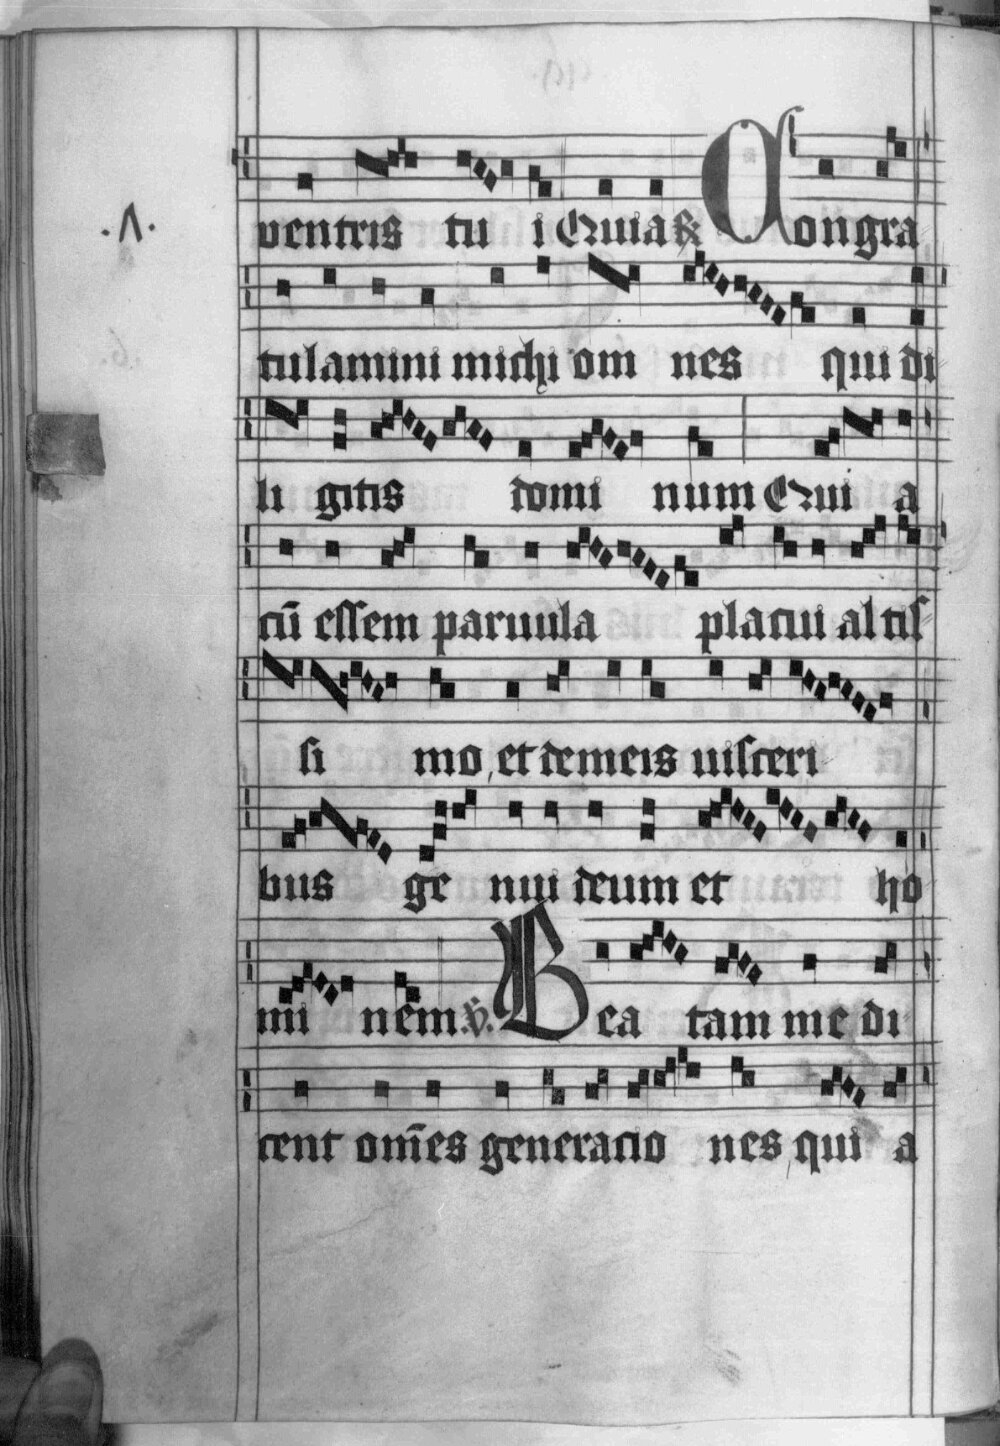 .Λ.
ventris tu i Quia ℟ Congra
tulamini michi om nes qui di
li gitis domi num Qui a
cū essem paruula placui altis
si mo et de meis uisceri
bus ge nui deum et ho
mi nem ℣. Bea tam me di
cent om̄es generacio nes qui a